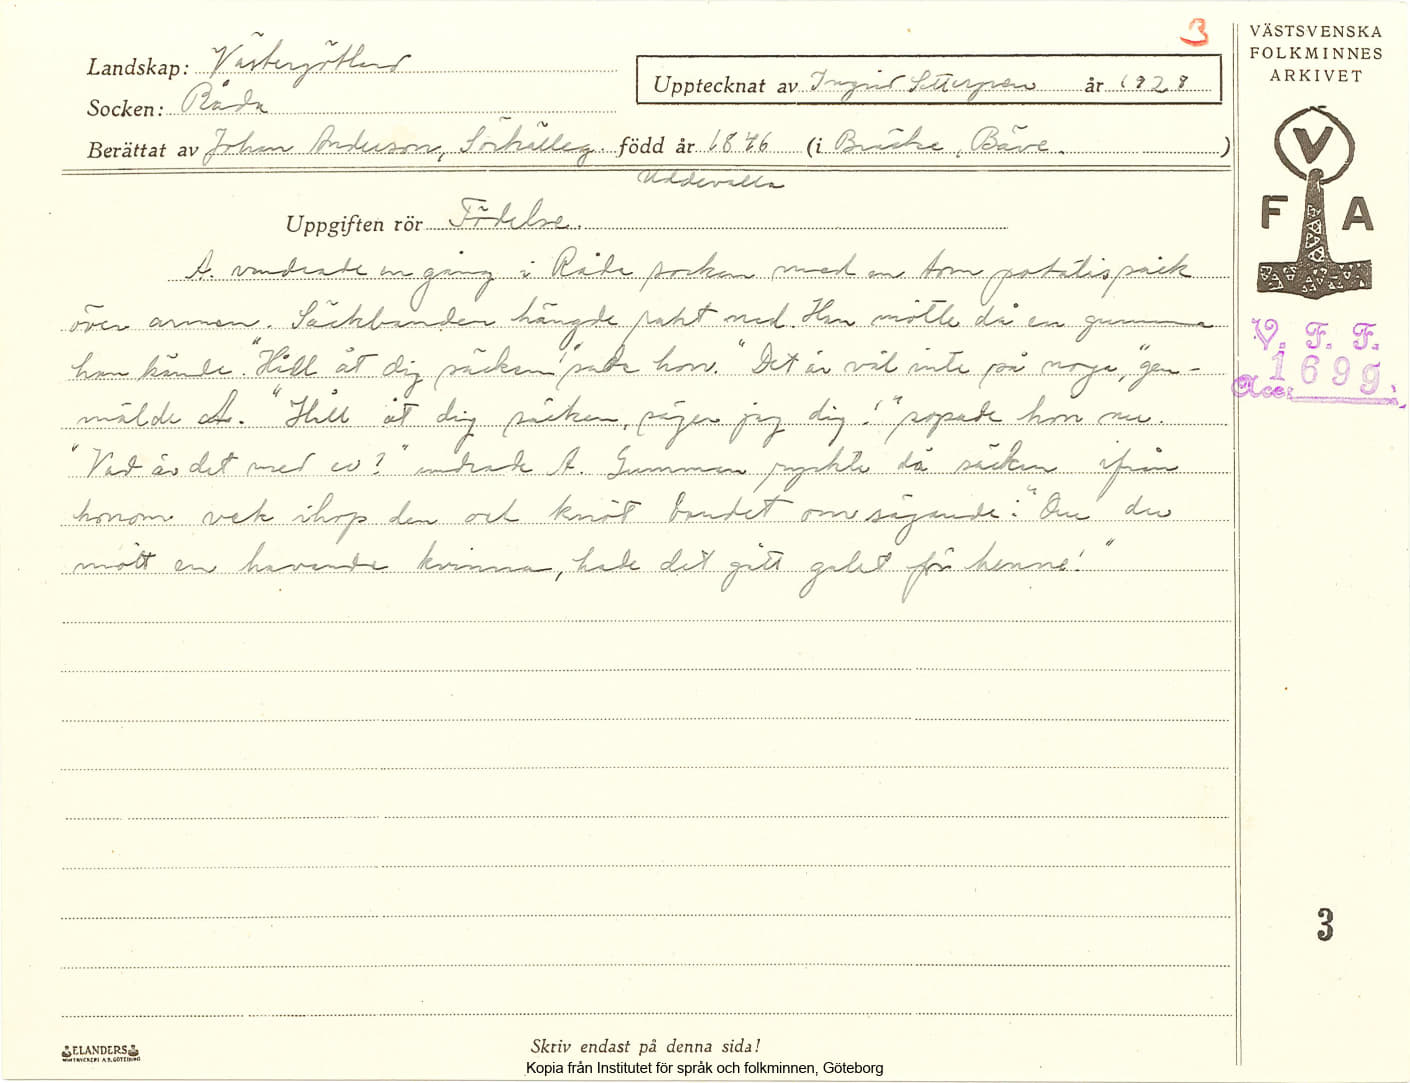 3
VÄSTSVENSKA
FOLKMINNES
ARKIVET
Landskap: Västergötland
Upptecknat av Ingrid år 1928
Socken: Råda
Berättat av Johan Anderson, född år 1846 (i Bräcke, Bäve. )
Uddevalla
Uppgiften rör Födelse.
V
F A
A. vandrade en gång i Råda socken med en tom potätissäck
över armen. Säckbanden hängde rakt ned. Han mötte då en gumma
han kände. "Håll åt dig säcken!" sade hon. "Det är väl inte så noga," gen-
mälde A. "Håll åt dig säcken, säger jag dig!" ropade hon nu.
"Vad är det med et?" undrade A. Gumman ryckte då säcken ifrån
honom vek ihop den och knöt bandet om sägande: "Om du
mött en havande kvinna, hade det gått galet för henne!"
V. F. F.
Acc: 1699.
3
ELANDERS
Skriv endast på denna sida!
Kopia från Institutet för språk och folkminnen, Göteborg